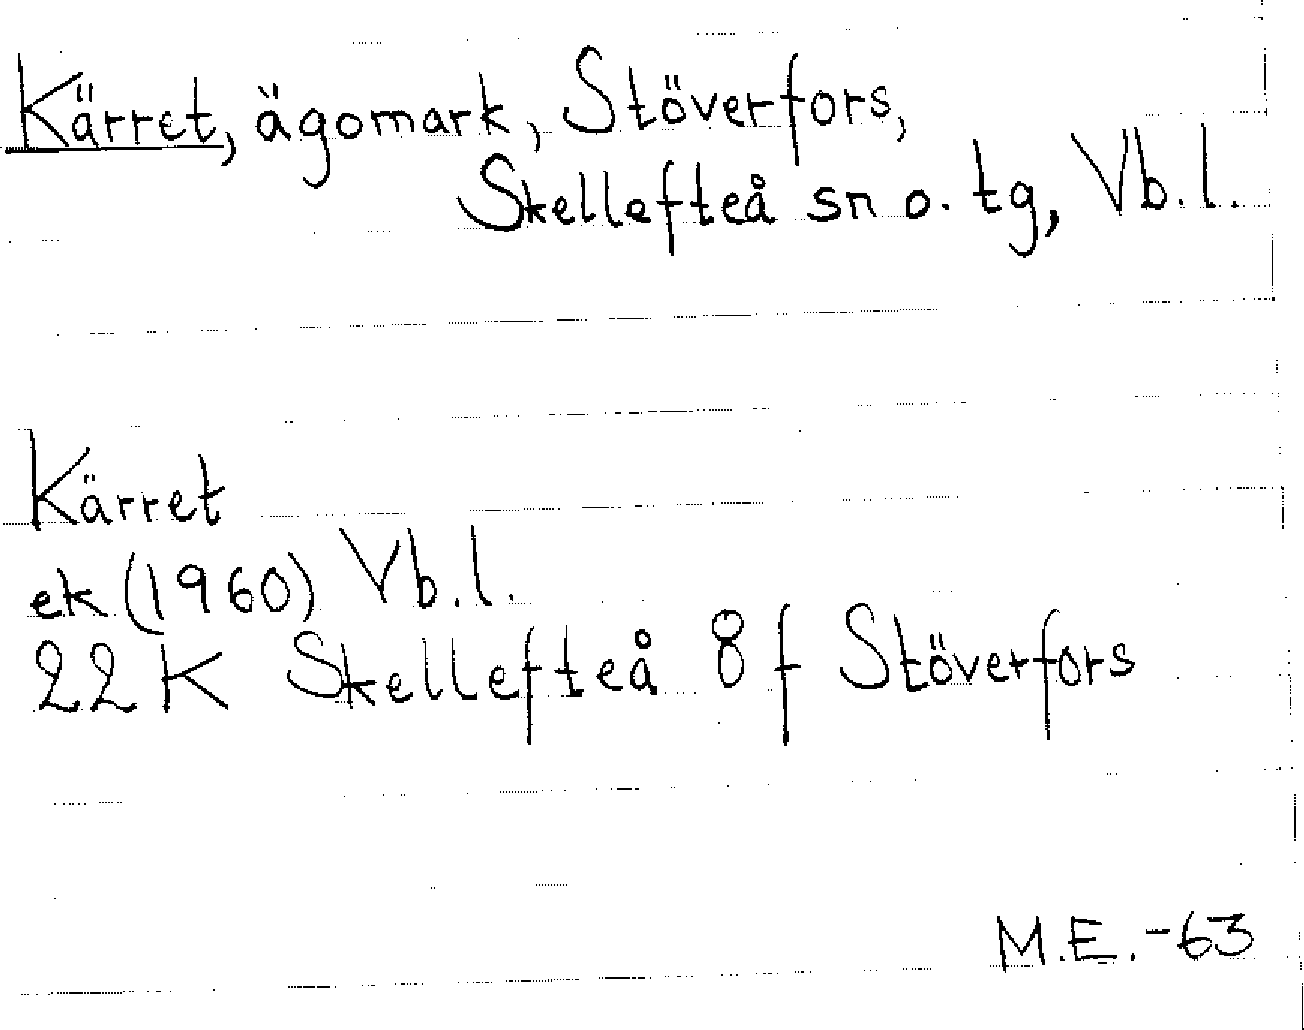 Kärret, ägomark, Stöverfors,
Skellefteå sn o. tg, Vb. l.
Kärret
ek (1960) Vb. l.
22 K Skellefteå 8 f Stöverfors
M.E. -63